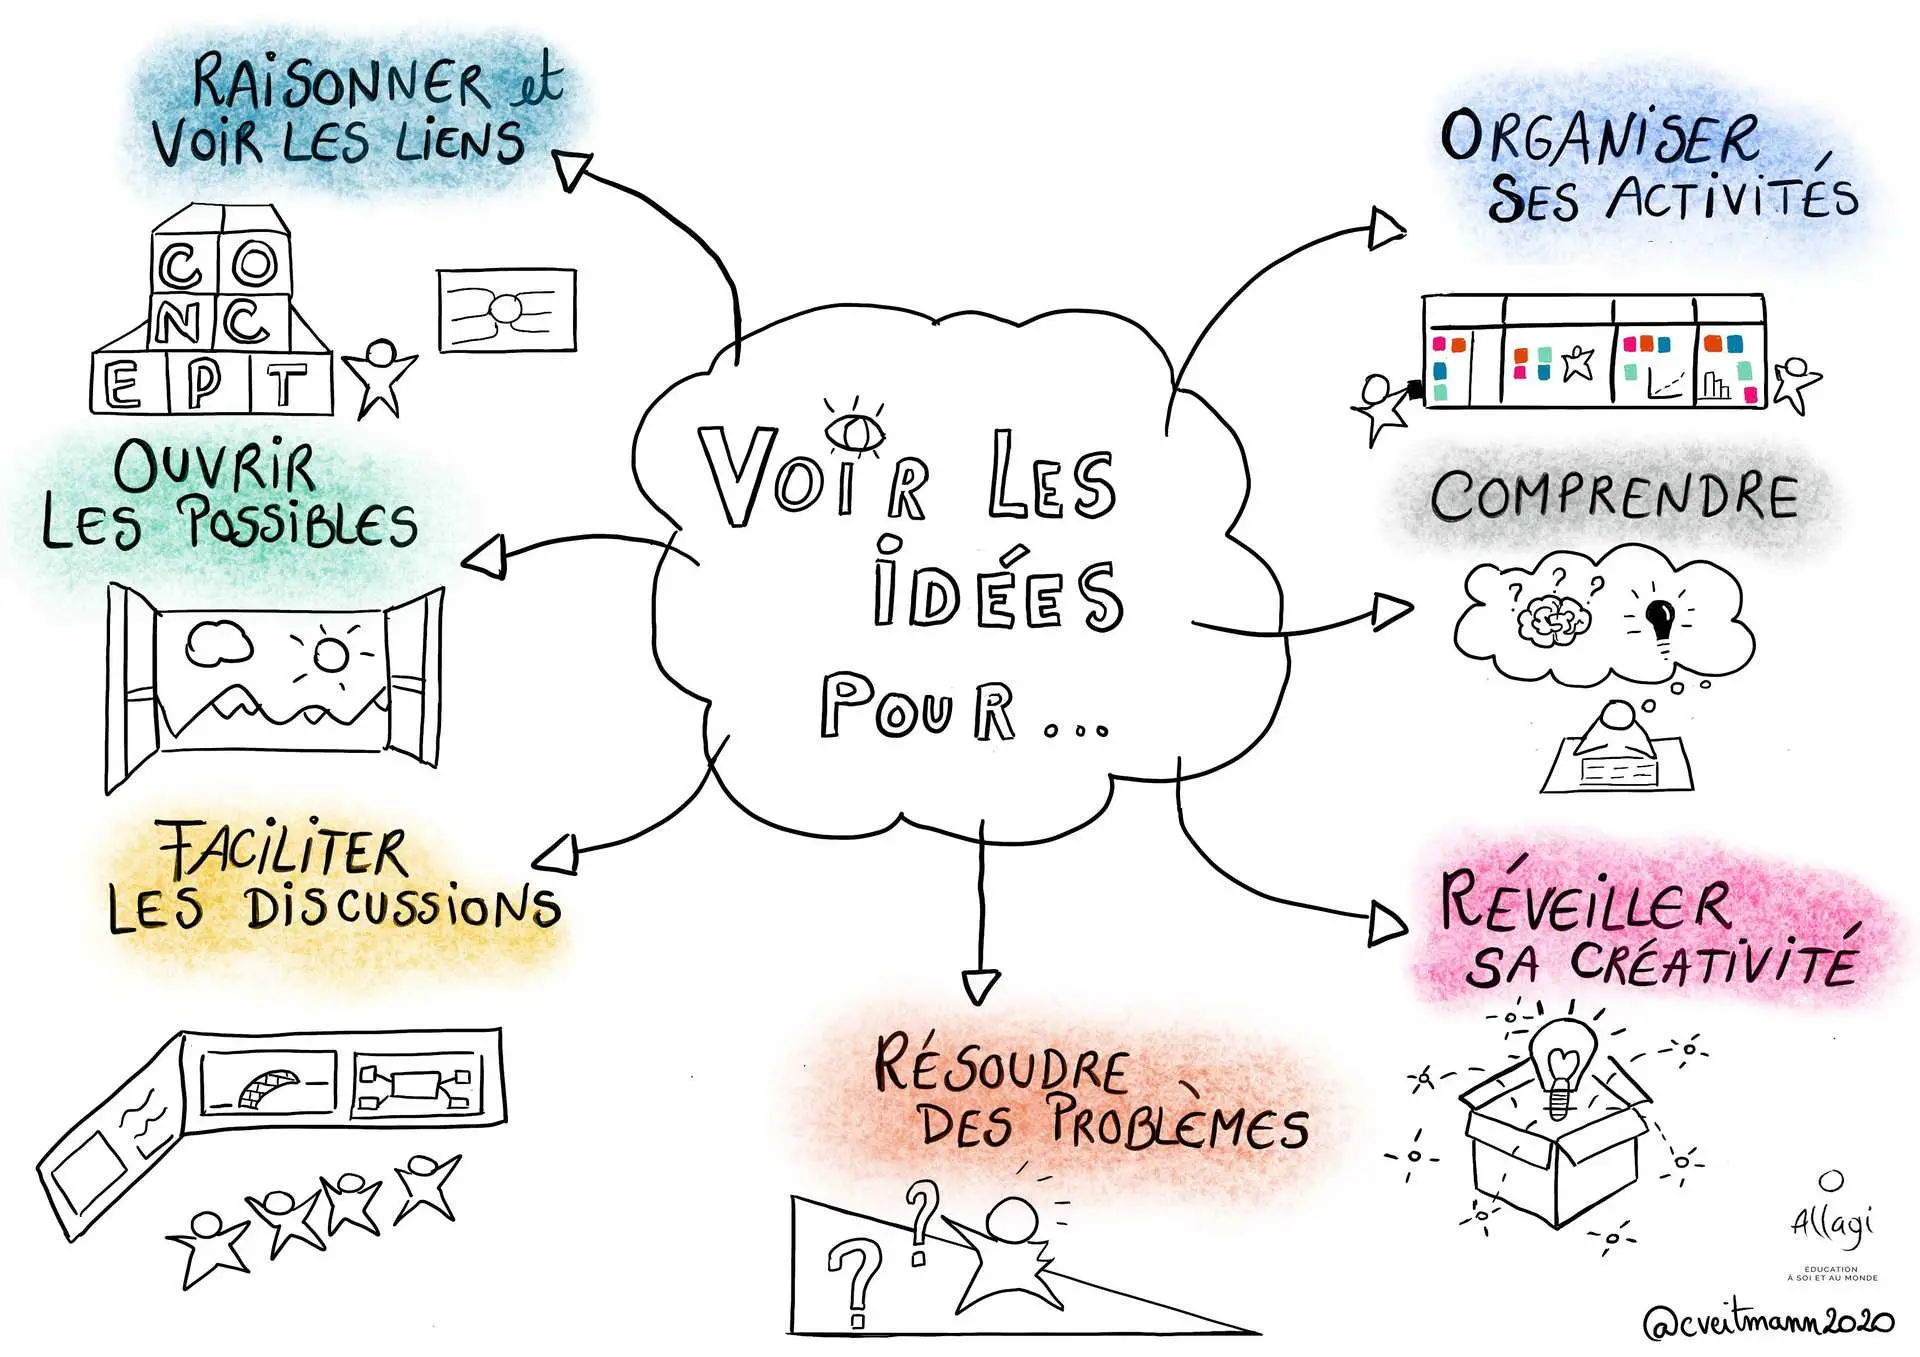 VOIR LES
IDÉES
POUR...
RAISONNER et
VOIR LES LIENS
CO
NC
EPT
OUVRIR
LES POSSIBLES
FACILITER
LES DISCUSSIONS
RÉSOUDRE
DES PROBLÈMES
?
?
ORGANISER
SES ACTIVITÉS
COMPRENDRE
? ? ?
RÉVEILLER
SA CRÉATIVITÉ
Allagi
ÉDUCATION
À SOI ET AU MONDE
@cveitmann2020